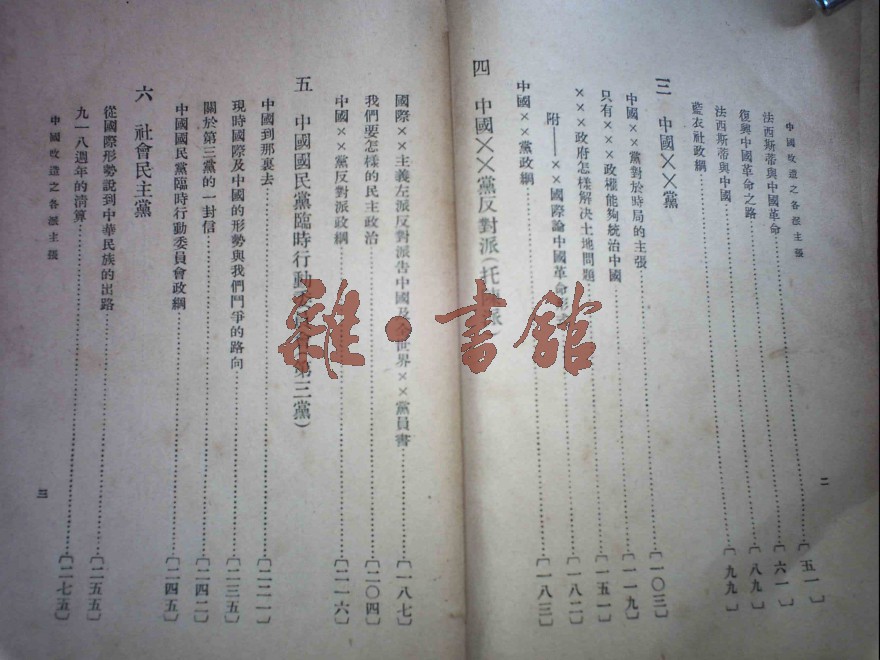 中國改造之各派主張
二
法西斯蒂與中國革命〔五一〕
復興中國革命之路〔六一〕
法西斯蒂與中國〔八九〕
藍衣社政綱〔九九〕
三 中國××黨
中國××黨對於時局的主張〔一〇三〕
只有×××政權能夠統治中國〔一一九〕
×××政府怎樣解決土地問題〔一五一〕
附——××國際論中國革命形〔一八二〕
中國××黨政綱〔一八三〕
四 中國××黨反對派(托派)
國際××主義左派反對派告中國及全世界××黨員書〔一八七〕
我們要怎樣的民主政治〔二〇四〕
中國××黨反對派政綱〔二一六〕
五 中國國民黨臨時行動委員會(第三黨)
中國到那裏去〔二二一〕
現時國際及中國的形勢與我們鬥爭的路向〔二三五〕
關於第三黨的一封信〔二四二〕
中國國民黨臨時行動委員會政綱〔二四五〕
六 社會民主黨
從國際形勢說到中華民族的出路〔二五五〕
九一八週年的清算〔二七五〕
中國改造之各派主張
三
雜·書館